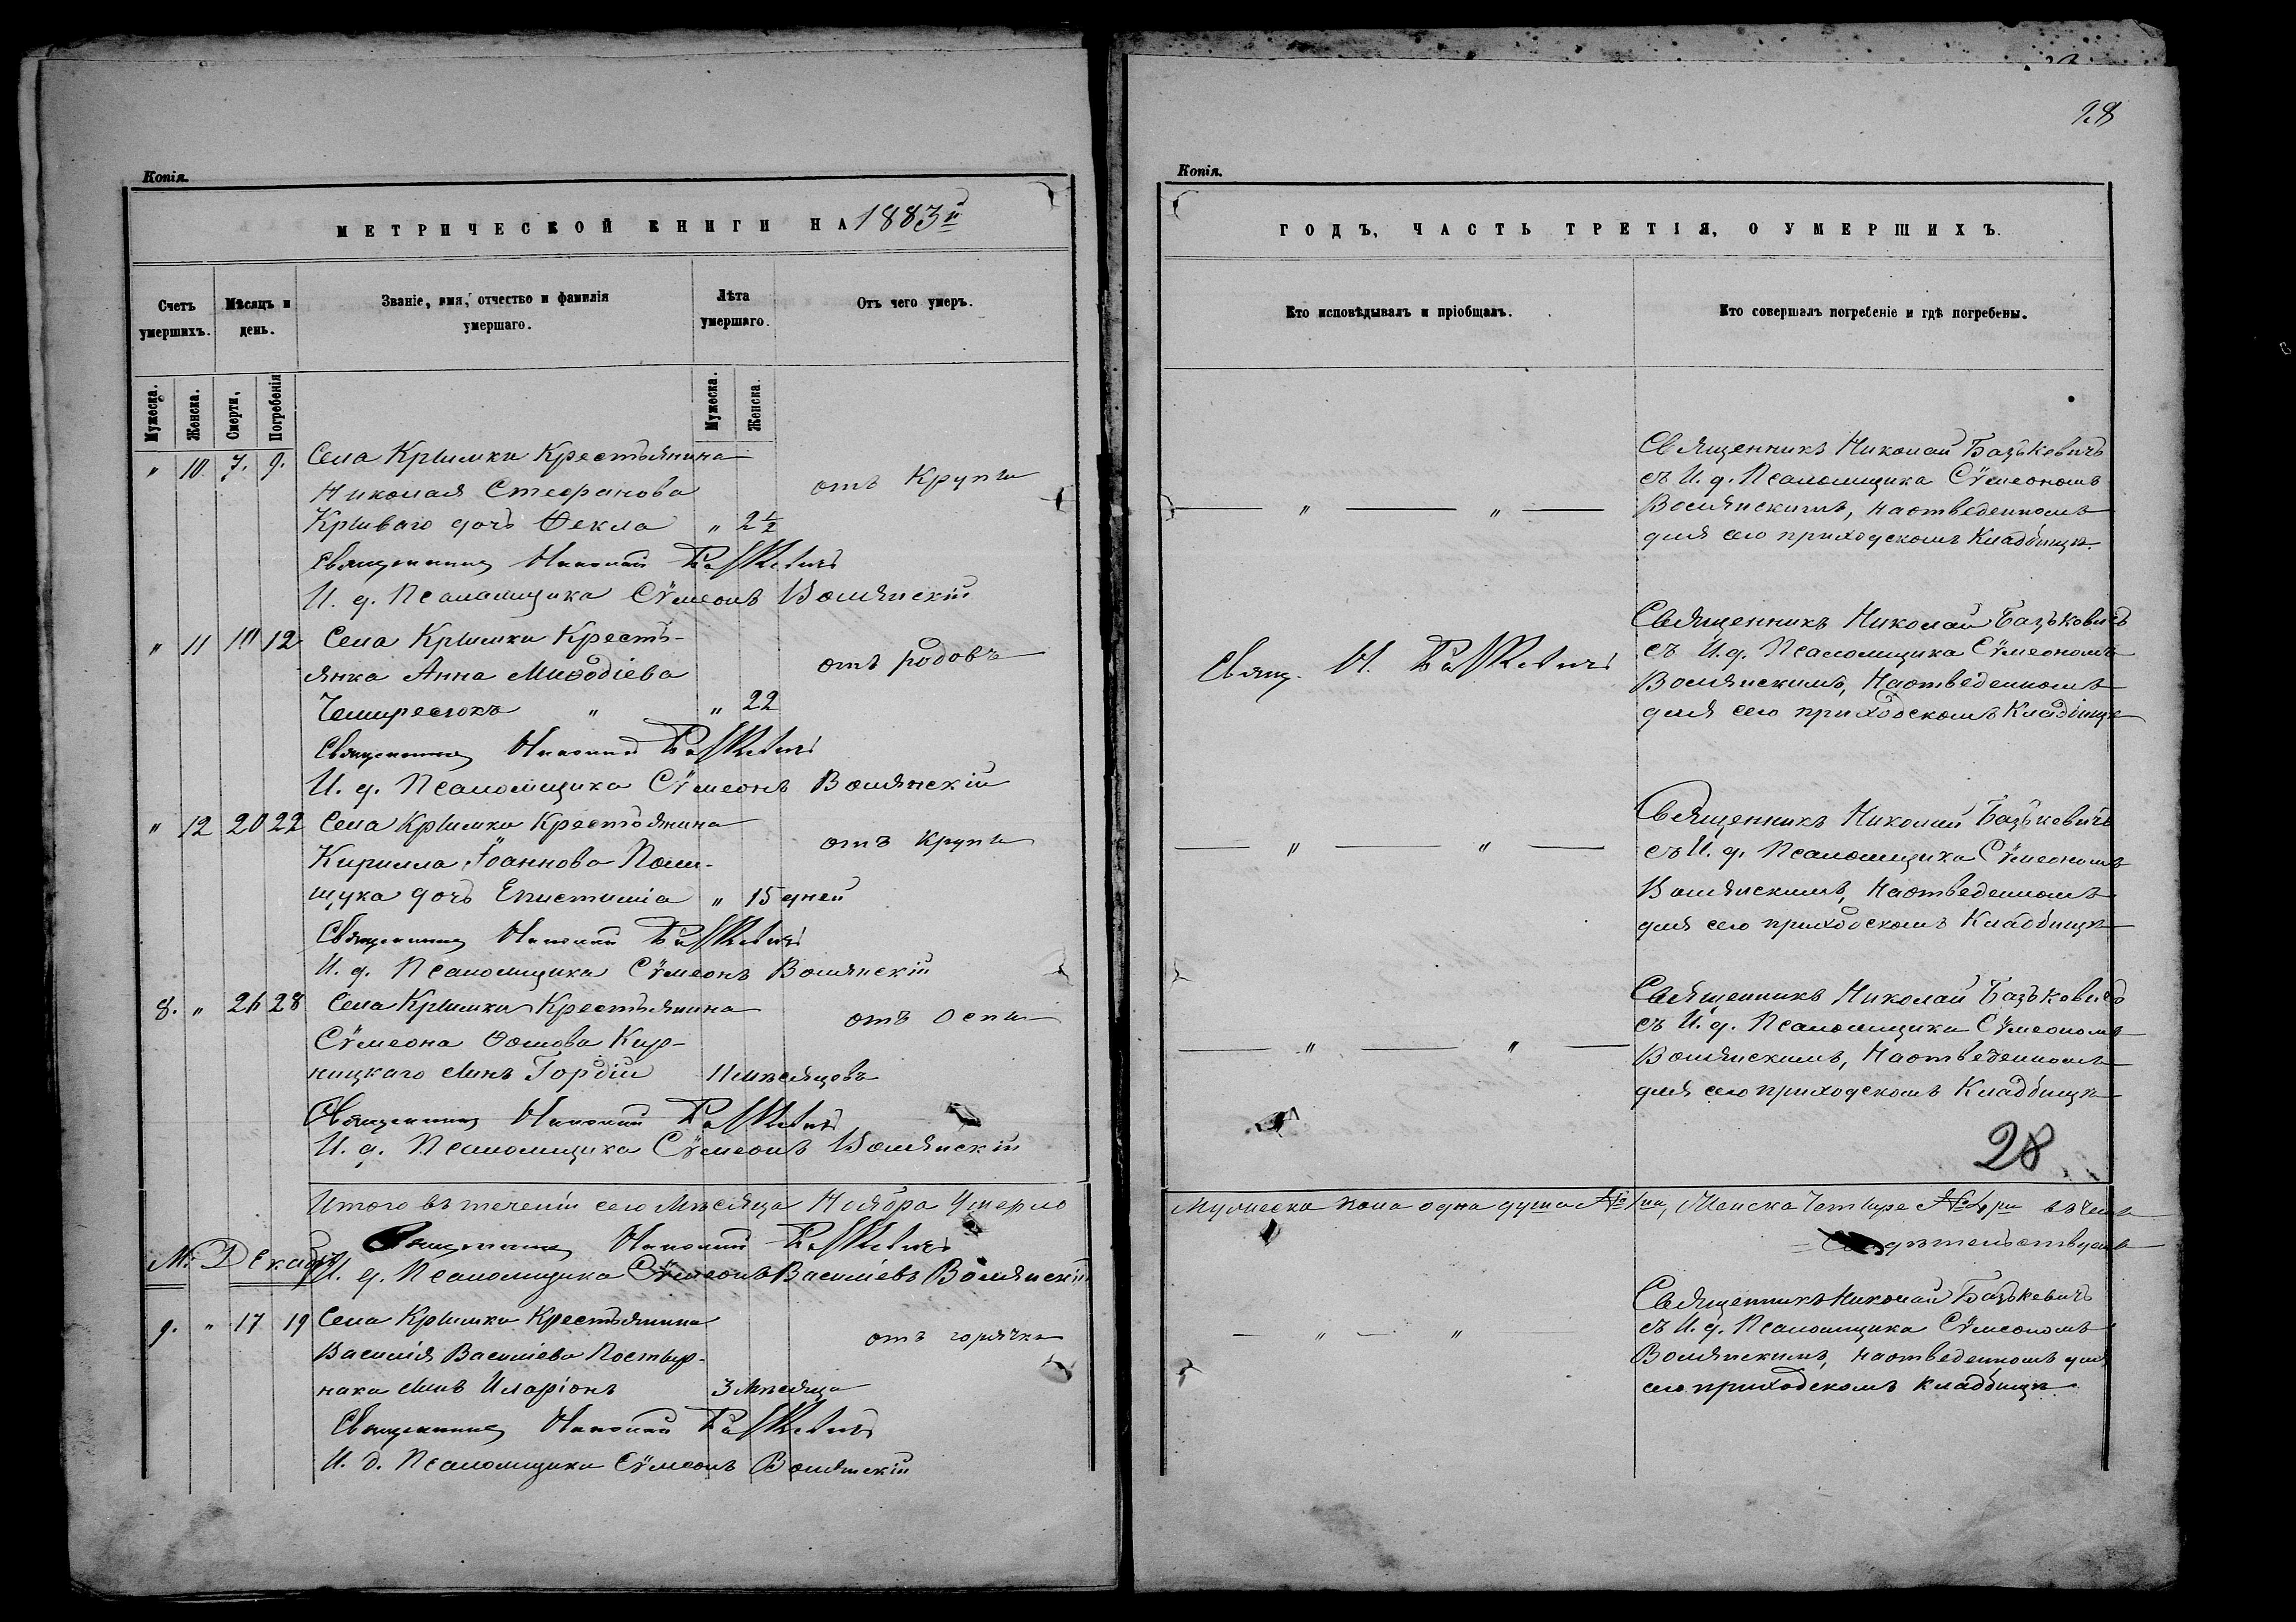 28
Копія.
МЕТРИЧЕСКОЙ КНИГИ НА 1883й
Счетъ умершихъ.
Мѣсяцъ и день.
Званіе, имя, отчество и фамилія умершаго.
Лѣта умершаго.
Отъ чего умеръ.
Мужеска.
Женска.
Смерти,
Погребенія
Мужеска.
Женска.
" 10. 7. 9. Села Крымки Крестьянина
Николая Стефанова отъ Крупы
Криваго дочь Ѳекла " 2½
Священникъ Николай
И. д. Псаломщика Сѵмеонъ Волянскій
" 11 10 12 Села Крымки Кресть-
янка Анна Миѳодіева отъ родовъ
" " 22
Священникъ Николай
И. д. Псаломщика Сѵмеонъ Волянскій
" 12 20 22 Села Крымки Крестьянина
Кирилла Іоаннова Поли- отъ крупы
щука дочь Епистимія " 15 дней
Священникъ Николай
И. д. Псаломщика Сѵмеонъ Волянскій
8. " 26 28 Села Крымки Крестьянина
Сѵмеона Ѳомова Кир- отъ Оспы
ницкаго сынъ Гордій 11 мѣсяцовъ
Священникъ Николай
И. д. Псаломщика Сѵмеонъ Волянскій
Итого въ теченіи сего Мѣсяца Ноября Умерло
Священникъ Николай
М. Декабрь
И. д. Псаломщика Сѵмеонъ Василіевъ Волянскій
9. " 17 19 Села Крымки Крестьянина
Василія Василіева Постыр- отъ горячки
нака сынъ Иларіонъ 3 Мѣсяца
Священникъ Николай
И. д. Псаломщика Сѵмеонъ Волянскій
Копія.
ГОДЪ, ЧАСТЬ ТРЕТІЯ, О УМЕРШИХЪ.
Кто исповѣдывалъ и пріобщалъ.
Кто совершалъ погребеніе и гдѣ погребены.
Священникъ Николай Базькевичъ
" " съ И. д. Псаломщика Сѵмеономъ
Волянскимъ, на отведенномъ
для сего приходскомъ Кладбищѣ.
Священникъ Николай Базькевичъ
Свящ. Н. съ И. д. Псаломщика Сѵмеономъ
Волянскимъ, на отведенномъ
для сего приходскомъ Кладбищѣ
Священникъ Николай Базькевичъ
" " съ И. д. Псаломщика Сѵмеономъ
Волянскимъ, на отведенномъ
для сего приходскомъ Кладбищѣ
Священникъ Николай Базькевичъ
съ И. д. Псаломщика Сѵмеономъ
" " Волянскимъ, на отведенномъ
для сего приходскомъ Кладбищѣ
28
Мужеска пола одна душа № 1на, Женска Четыре № 4ри въ чемъ
Священникъ Николай Базькевичъ
" " съ И. д. Псаломщика Сѵмеономъ
Волянскимъ, на отведенномъ для
сего приходскомъ кладбищѣ.